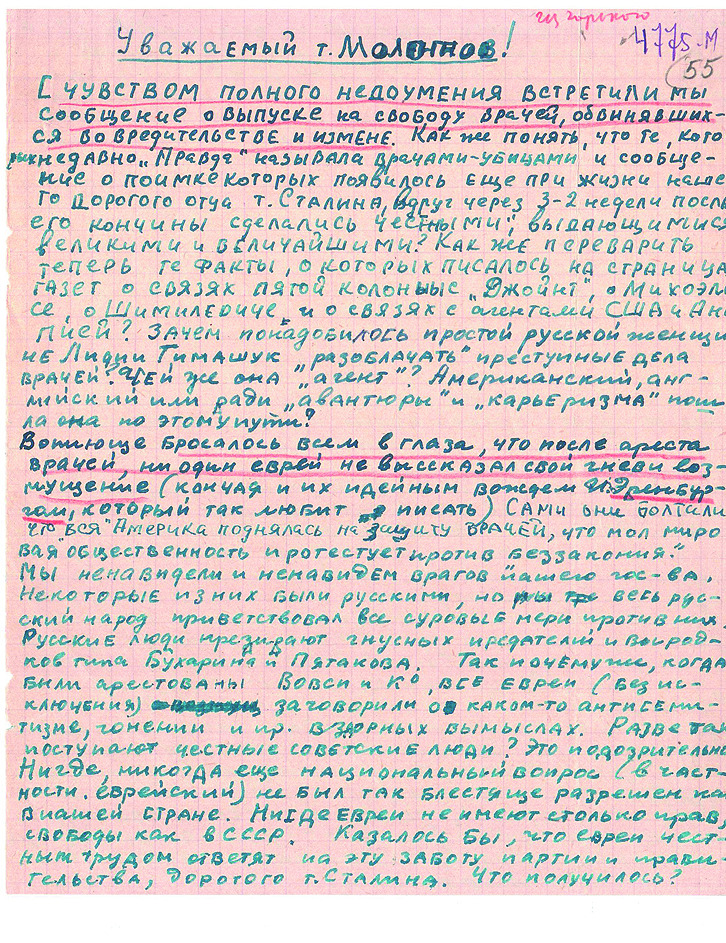 из горького
4775-М
55
Уважаемый т. Молотов!
С чувством полного недоумения встретили мы
сообщение о выпуске на свободу врачей, обвинявших-
ся во вредительстве и измене. Как же понять, что те, кото
рых недавно „Правда" называла врачами-убийцами и сообще-
ние о поимке которых появилось еще при жизни наше
го дорогого отца т. Сталина, вдруг через 3-2 недели посл
его кончины сделались честными, выдающимис
великими и величайшими? Как же переварить
теперь те факты, о которых писалось на страница
газет о связях пятой колонны с „Джойнт", о Михоэл
се, о Шимилевиче, и о связях с агентами США и Ан
глией? Зачем понадобилось простой русской женщи
не Лидии Тимашук „разоблачать" преступные дела
врачей? Чей же она „агент"? Американский, анг-
лийский или ради „авантюры" и „карьеризма" пош
ла она по этому пути?
Вопиюще бросалось всем в глаза, что после ареста
врачей, ни один еврей не выссказал свой гнев и воз
мущение (кончая и их идейным вождем И. Эренбур-
гом, который так любит писать) Сами они болтали
что "вся" Америка поднялась на защиту врачей, что мол миро
вая "общественность и ротестует против беззакония."
Мы ненавидели и ненавидем врагов нашего гос-ва.
Некоторые из них были русскими, но весь рус-
ский народ приветствовал все суровые меры против них.
Русские люди презирают гнусных предателей и выред-
ков типа Бухарина и Пятакова. Так почему же, когда
были арестованы Вовси и К°, все евреи (без ис-
ключения) заговорили о каком-то антисеми-
тизме, гонении и пр. вздорных вымыслах. Разве так
поступают честные советские люди? Это подозрительно
Нигде, никогда еще национальный вопрос (в част-
ности. еврейский) не был так блестяще разрешен ка
в нашей стране. Нигде евреи не имеют столько прав,
свободы как в СССР. Казалось бы, что евреи чест-
ным трудом ответят на эту заботу партии и прави-
тельства, дорогого т. Сталина. Что получилось?